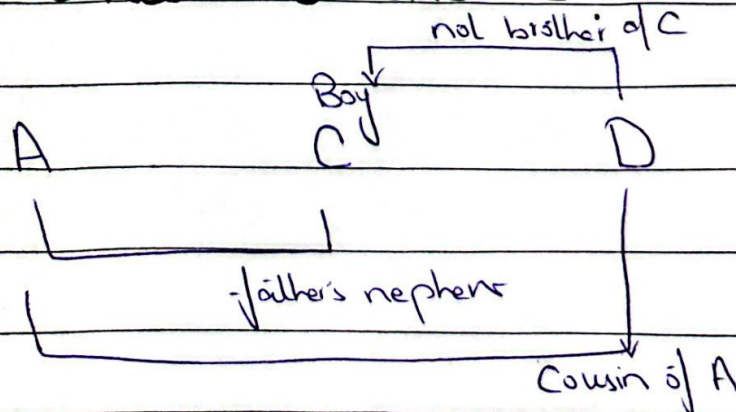 not brother of C
Boy
A C D
father's nephew
Cousin of A